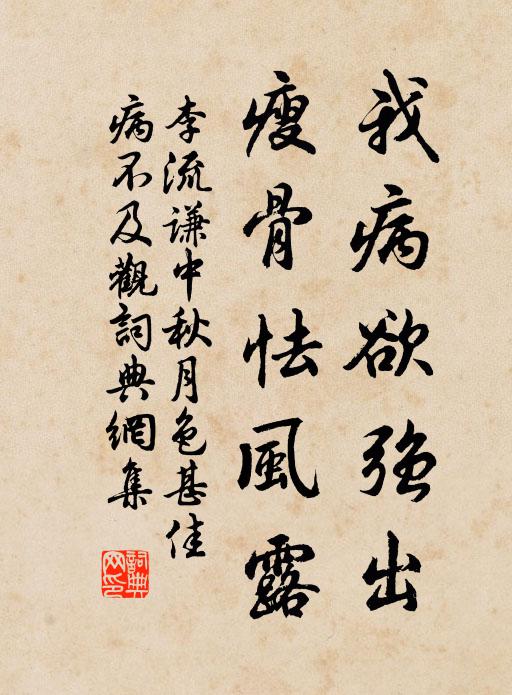 我病欲強出
瘦骨怯風露
李流謙中秋月色甚佳
病不及觀詞典網集
詞典
网印